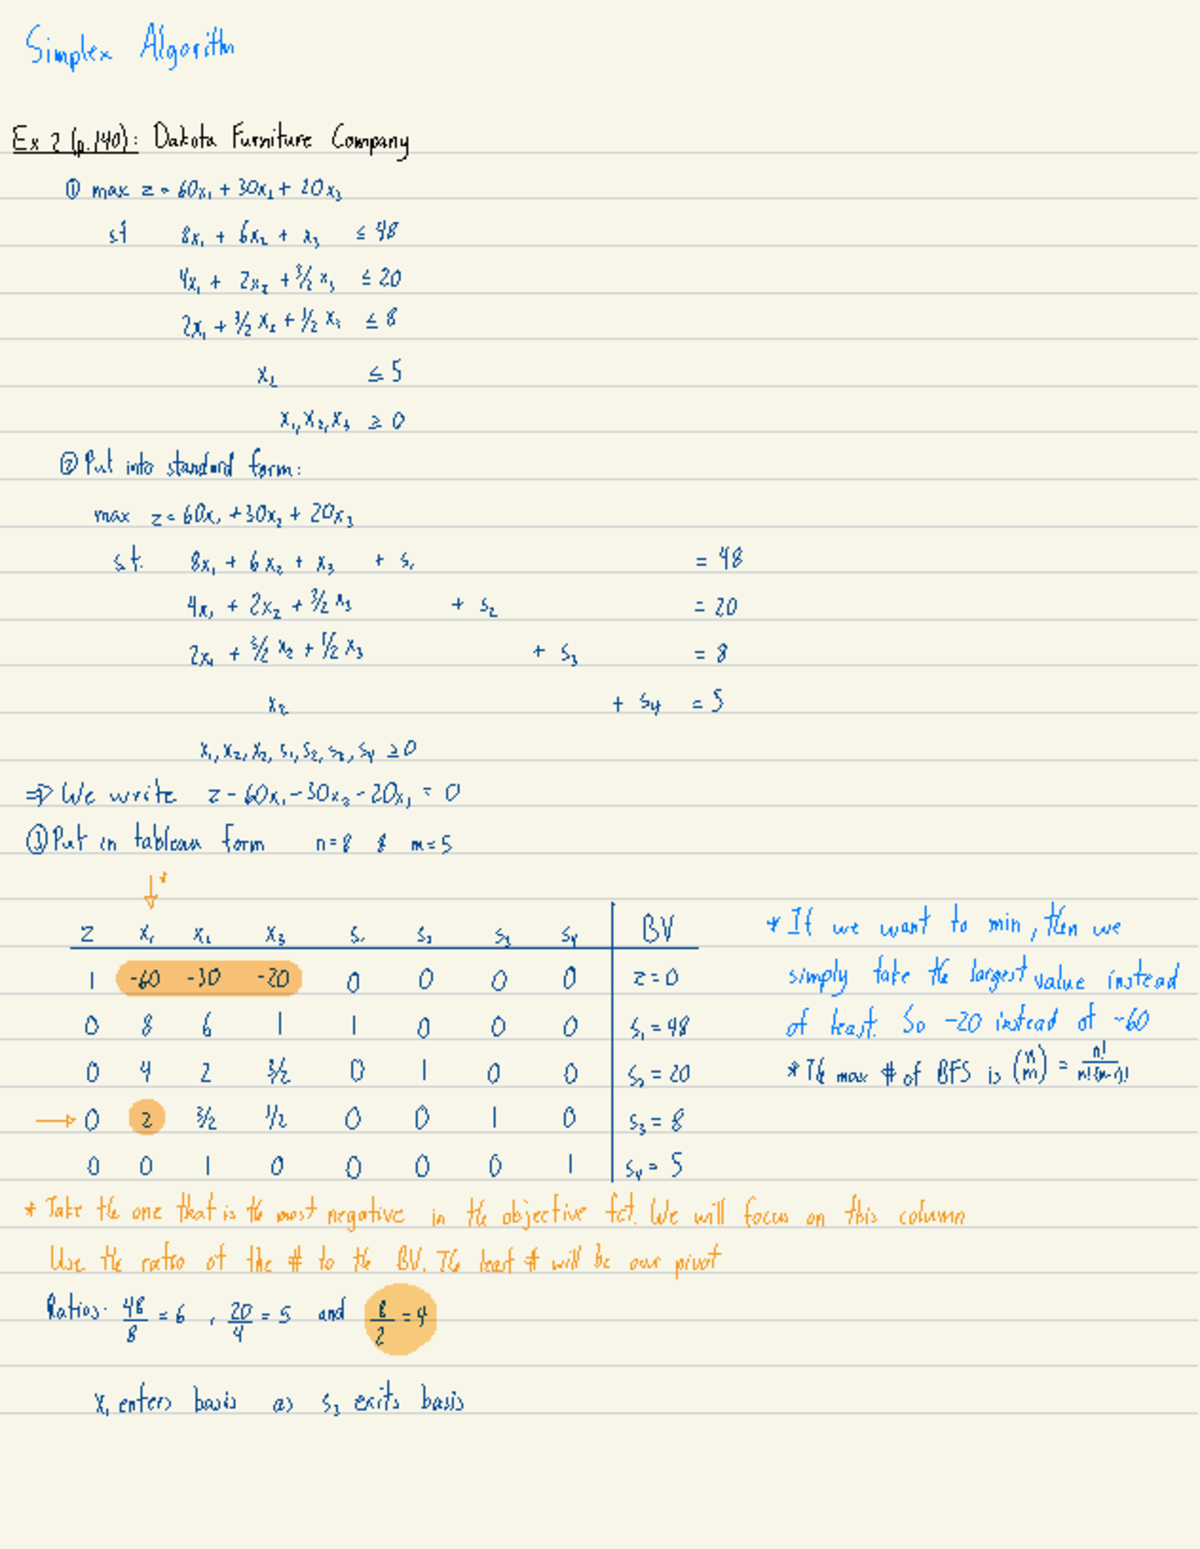 Simplex Algorithm
Ex 2 (p.140): Dakota Furniture Company
① max z = 60x₁ + 30x₂ + 20x₃
st 8x₁ + 6x₂ + x₃ ≤ 48
4x₁ + 2x₂ + 3/2 x₃ ≤ 20
2x₁ + 3/2 x₂ + 1/2 x₃ ≤ 8
x₂ ≤ 5
x₁, x₂, x₃ ≥ 0
② Put into standard form:
max z = 60x₁ + 30x₂ + 20x₃
s.t. 8x₁ + 6x₂ + x₃ + s₁ = 48
4x₁ + 2x₂ + 3/2 x₃ + s₂ = 20
2x₁ + 3/2 x₂ + 1/2 x₃ + s₃ = 8
x₂ + s₄ = 5
x₁, x₂, x₃, s₁, s₂, s₃, s₄ ≥ 0
⇒ We write z - 60x₁ - 30x₂ - 20x₃ = 0
③ Put in tableau form n=8 & m=5
↓*
z x₁ x₂ x₃ s₁ s₂ s₃ s₄ BV
1 -60 -30 -20 0 0 0 0 z=0
0 8 6 1 1 0 0 0 s₁ = 48
0 4 2 3/2 0 1 0 0 s₂ = 20
→ 0 2 3/2 1/2 0 0 1 0 s₃ = 8
0 0 1 0 0 0 0 1 s₄ = 5
* If we want to min, then we
simply take the largest value instead
of least. So -20 instead of -60
* The max # of BFS is (n m) = n!
* Take the one that is the most negative in the objective fct. We will focus on this column
Use the ratio of the # to the BV. The least # will be our pivot
Ratios: 48/8 = 6, 20/4 = 5 and 8/2 = 4
x₁ enters basis as s₃ exits basis